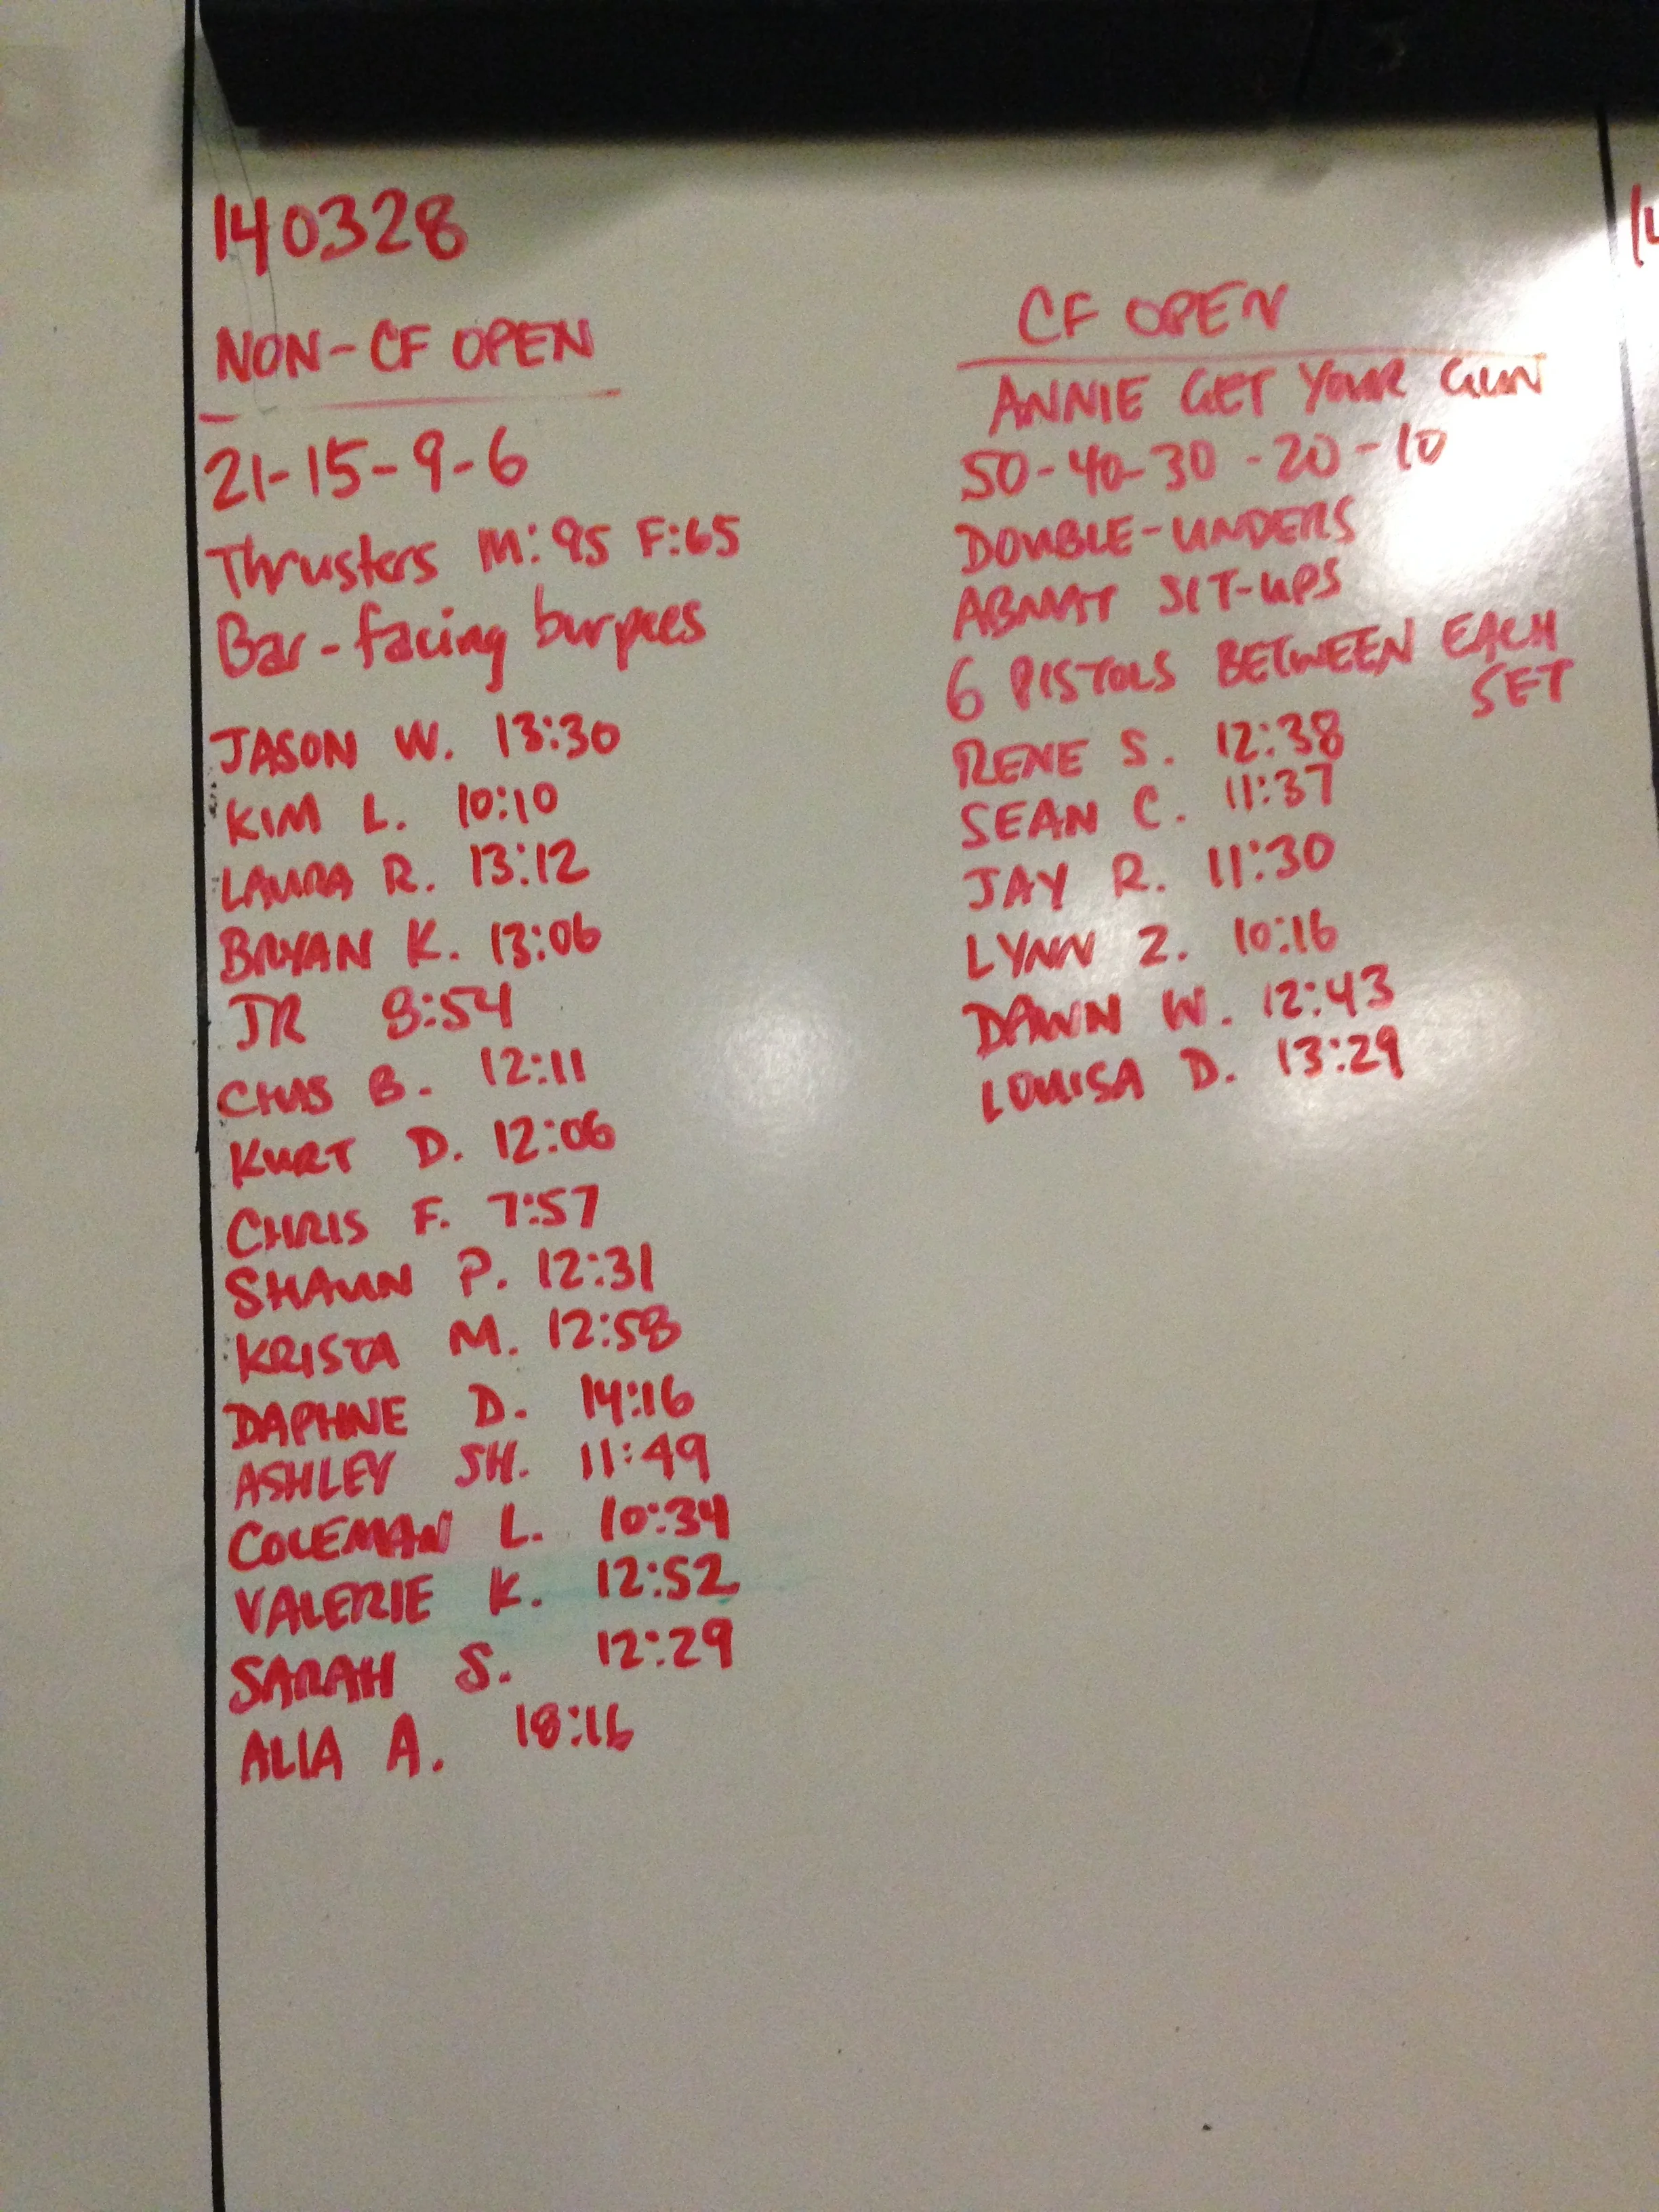 140328
NON-CF OPEN
21-15-9-6
Thrusters M:95 F:65
Bar-facing burpees
JASON W. 13:30
KIM L. 10:10
LAURA R. 13:12
BRYAN K. 13:06
JR 8:54
CHAS B. 12:11
KURT D. 12:06
CHRIS F. 7:57
SHAUN P. 12:31
KRISTA M. 12:58
DAPHNE D. 14:16
ASHLEY SH. 11:49
COLEMAN L. 10:34
VALERIE K. 12:52
SARAH S. 12:29
ALIA A. 18:16
CF OPEN
ANNIE GET YOUR GUN
50-40-30-20-10
DOUBLE-UNDERS
ABMAT SIT-UPS
6 PISTOLS BETWEEN EACH
SET
RENE S. 12:38
SEAN C. 11:37
JAY R. 11:30
LYNN Z. 10:16
DAWN W. 12:43
LOUISA D. 13:29